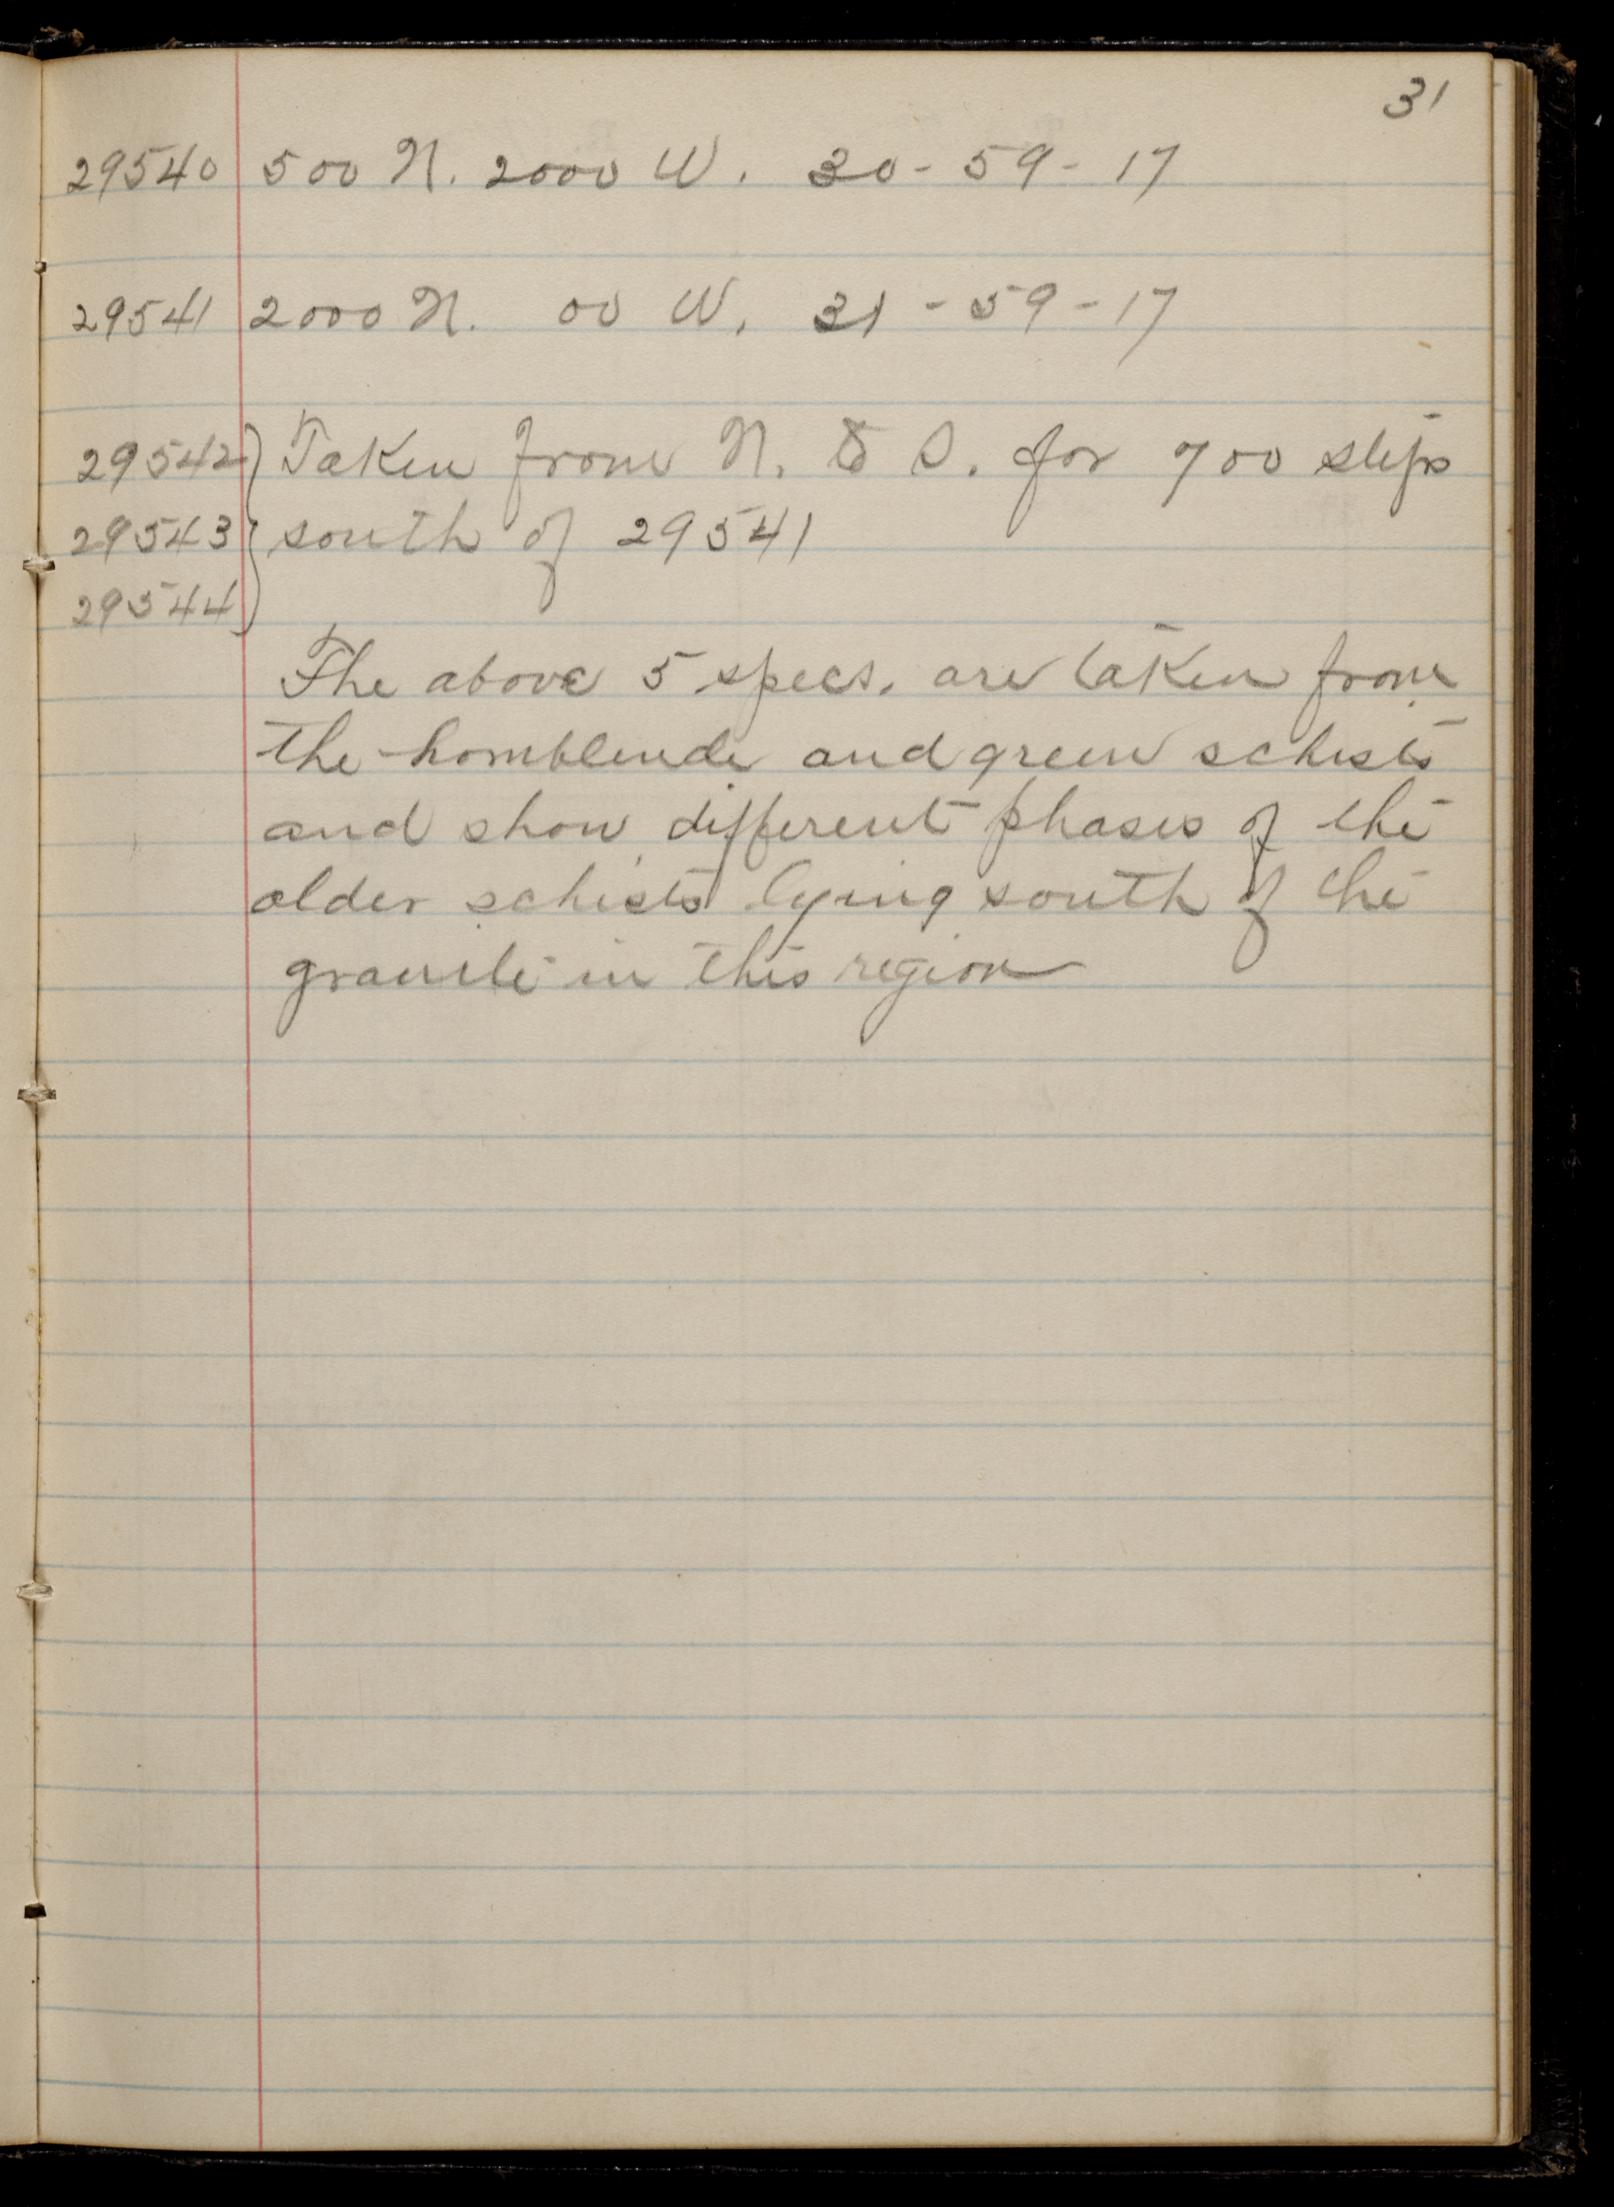 31
29540 500 N. 2000 W. 30-59-17
29541 2000 N. 00 W. 31-59-17
29542 } Taken from N. to S. for 700 steps
29543 } south of 29541
29544 }
The above 5 specs. are taken from
the hornblende and green schists
and show different phases of the
older schists lying south of the
granite in this region